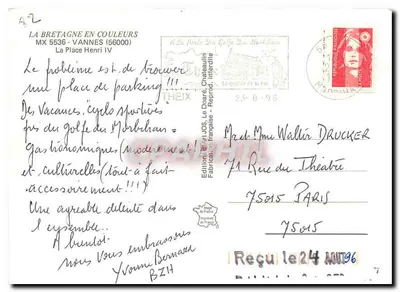 82
LA BRETAGNE EN COULEURS
MX 5536 - VANNES (56000)
La Place Henri IV
Le problème est de trouver
une place de parking !!!
Des Vacances, "cyclo sportives
près du golfe du Morbihan =
gastronomiques (modérément!)
et culturelles (tout à fait
accessoirement !!!)
Une agréable détente dans
l'ensemble..
A bientôt.
nous vous embrassons
Yvonne Bernard
BZH
THEIX
23-8-96
Editions d'Art JOS, Le Doaré, Chateaulin
Fabrication française - Reprod. interdite
Mr et Mme Walter DRUCKER
71 Rue du Théâtre
75015 PARIS
75015
Reçu le 24 AOUT 96